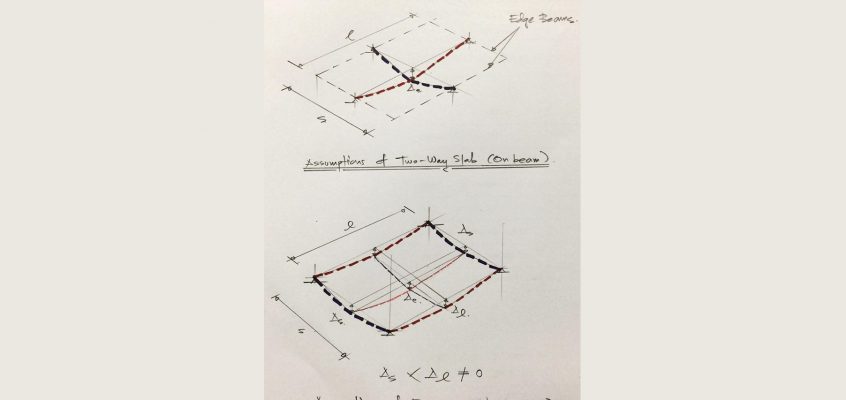 Edge Beams.
l
Δc
s
Assumptions of Two-Way Slab (On beam)
l
Δs
Δc
Δs.
Δl.
s
Δs < Δl ≠ 0